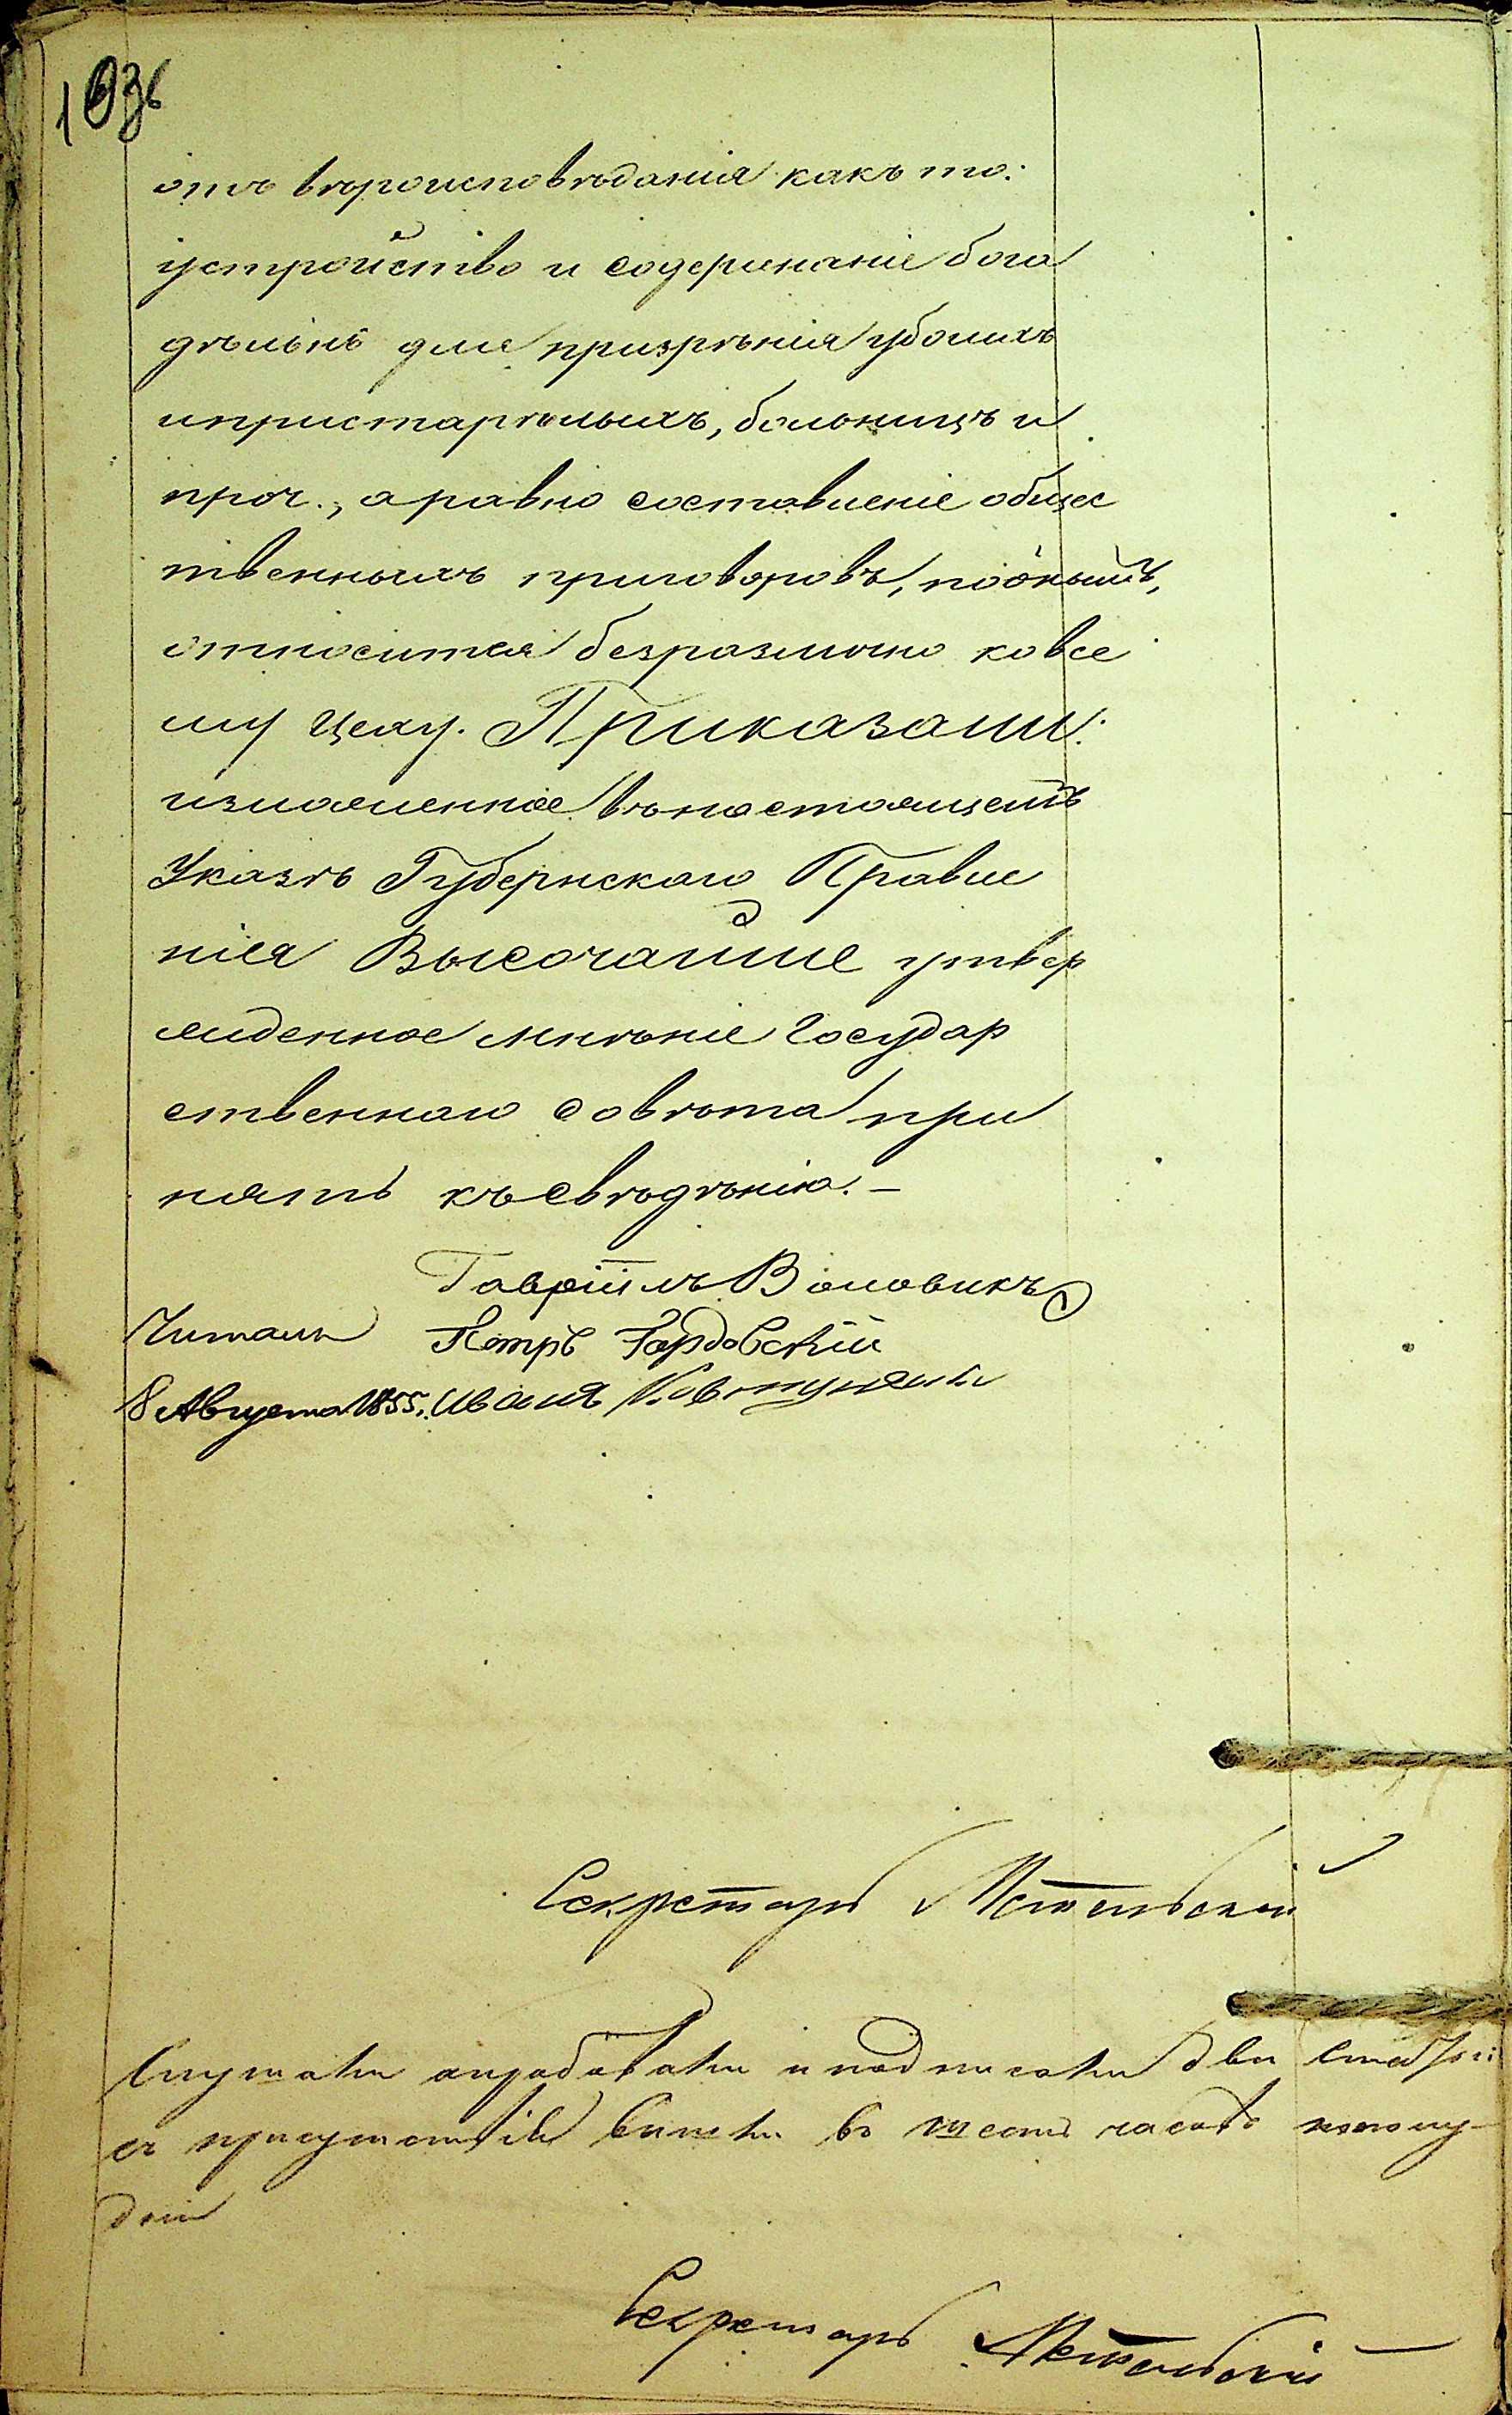 103б
отъ вѣроисповѣданія какъ то:
устройство и содержаніе бога
дѣльнъ для призрѣнія убогихъ
ипристарѣлыхъ, больницъ и
проч., а равно составленіе общес
твенныхъ приговоровъ, поо̂нымъ,
относится безразлично ко все
му Цеху. Приказали:
изъясненное въ настоящемъ
Указѣ Губернскаго Правле
нія Высочайше утвер
жденное мнѣніе Государ
ственнаго совѣта при
нять къ свѣдѣнію. –
Гавріилъ Воловикъ
Читалъ Петръ
8 Августа 1855. Иванъ
Секретарь
Слушали и подписали две
въ шесть часовъ
дни
Секретарь